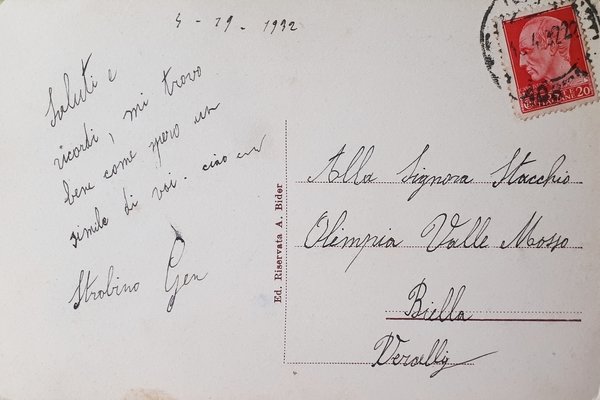 4 - 19 - 1932
Saluti e
ricordi, mi trovo
bene come spero un
simile di voi. ciao
Strobino Gen
Ed. Riservata A. Bider
20
Alla Signora Stacchio
Olimpia Valle Mosso
Biella
Vercelli